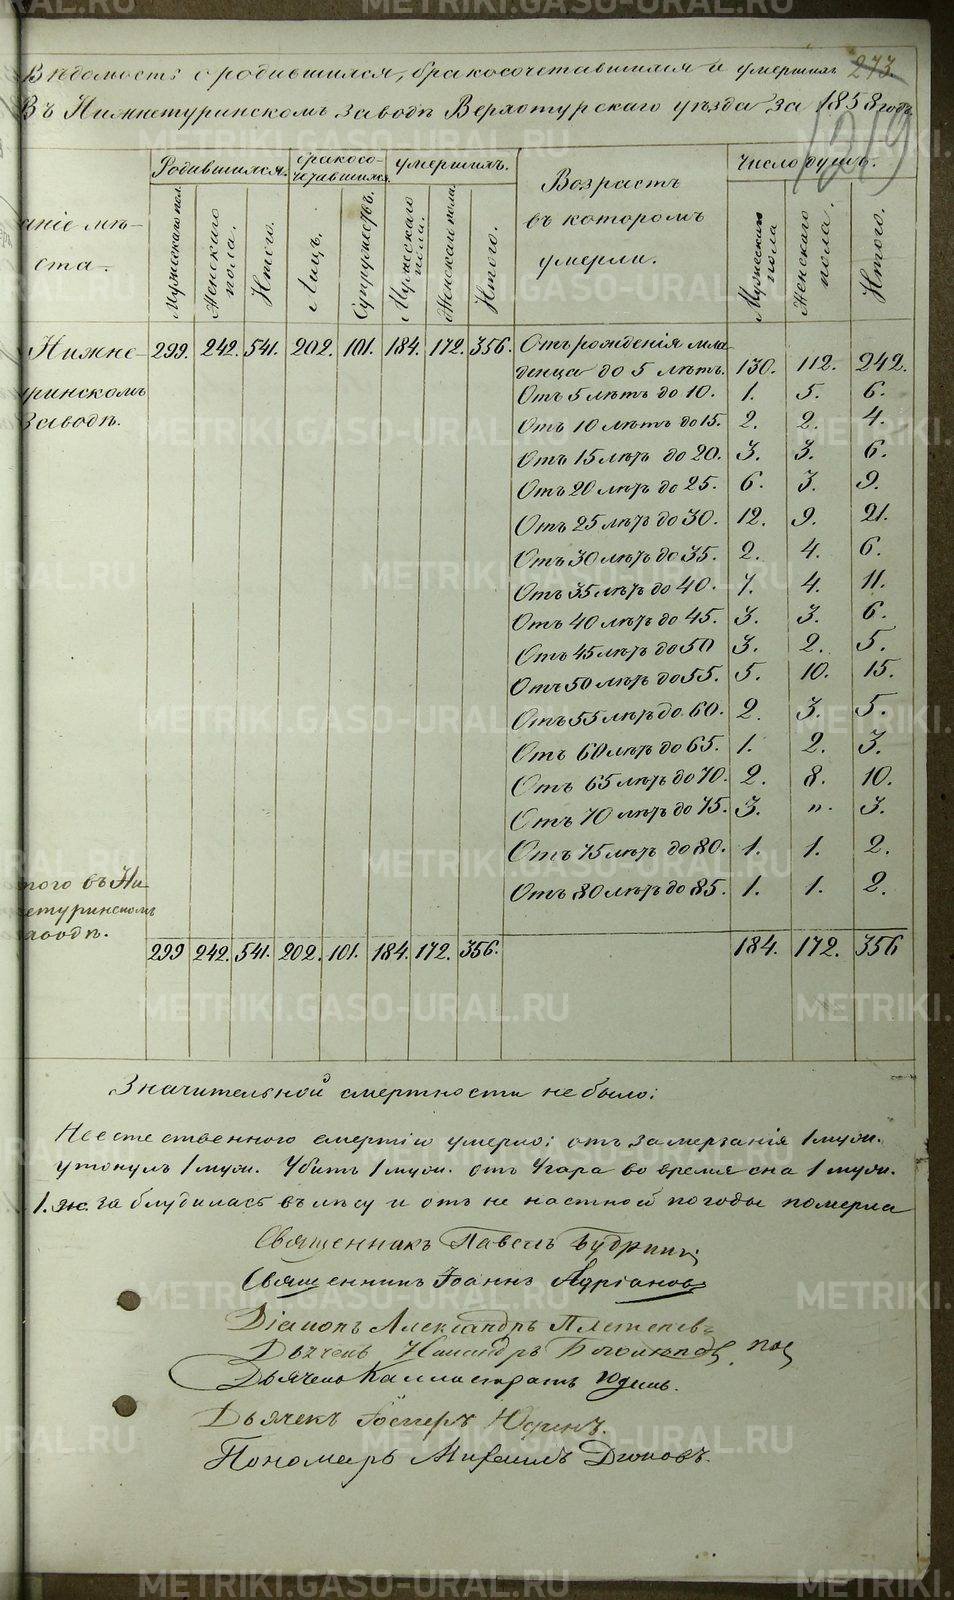 Вѣдомость о родившихся, бракосочетавшихся и умершихъ 273.
Въ Нижнетуринскомъ заводѣ Верхотурскаго уѣзда за 1858 годъ.
1219
Родившихся. бракосо- умершихъ. Число душъ.
четавшихся.
аніе мѣ-
ста.
Мужескаго пол.
Женскаго пола.
Итого.
Лицъ.
Супружествъ.
Мужескаго пола.
Женскаго пола.
Итого.
Возрастъ
въ которомъ
умерли.
Мужескаго пола
Женскаго пола.
Итого.
Нижне- 299. 242. 541. 202. 101. 184. 172. 356. Отъ рожденія мла
денца до 5 лѣтъ. 130. 112. 242.
уринскомъ Отъ 5 лѣтъ до 10. 1. 5. 6.
Заводѣ. Отъ 10 лѣтъ до 15. 2. 2. 4.
Отъ 15 лѣтъ до 20. 3. 3. 6.
Отъ 20 лѣтъ до 25. 6. 3. 9.
Отъ 25 лѣтъ до 30. 12. 9. 21.
Отъ 30 лѣтъ до 35. 2. 4. 6.
Отъ 35 лѣтъ до 40. 7. 4. 11.
Отъ 40 лѣтъ до 45. 3. 3. 6.
Отъ 45 лѣтъ до 50 3. 2. 5.
Отъ 50 лѣтъ до 55. 5. 10. 15.
Отъ 55 лѣтъ до 60. 2. 3. 5.
Отъ 60 лѣтъ до 65. 1. 2. 3.
Отъ 65 лѣтъ до 70. 2. 8. 10.
Отъ 70 лѣтъ до 75. 3. „. 3.
Отъ 75 лѣтъ до 80. 1. 1. 2.
того въ Ни- Отъ 80 лѣтъ до 85. 1. 1. 2.
етуринскомъ
аводѣ.
299 242. 541. 202. 101. 184. 172. 356. 184. 172. 356
Значительной смертности не было:
Неестественного смертію умерло: отъ замерзанія 1 муж.
утонулъ 1 муж. Убитъ 1 муж. отъ Угара во время сна 1 муж.
1. ж. заблудилась въ лѣсу и отъ не настной погоды померла
Священникъ Павелъ Будринъ
Священникъ Іоаннъ Адріановъ
Діаконъ Александръ
Дьячекъ
Дьячекъ Каллистратъ Юдинъ.
Дьячекъ Юдинъ.
Пономарь Михаилъ
METRIKI.GASO-URAL.RU